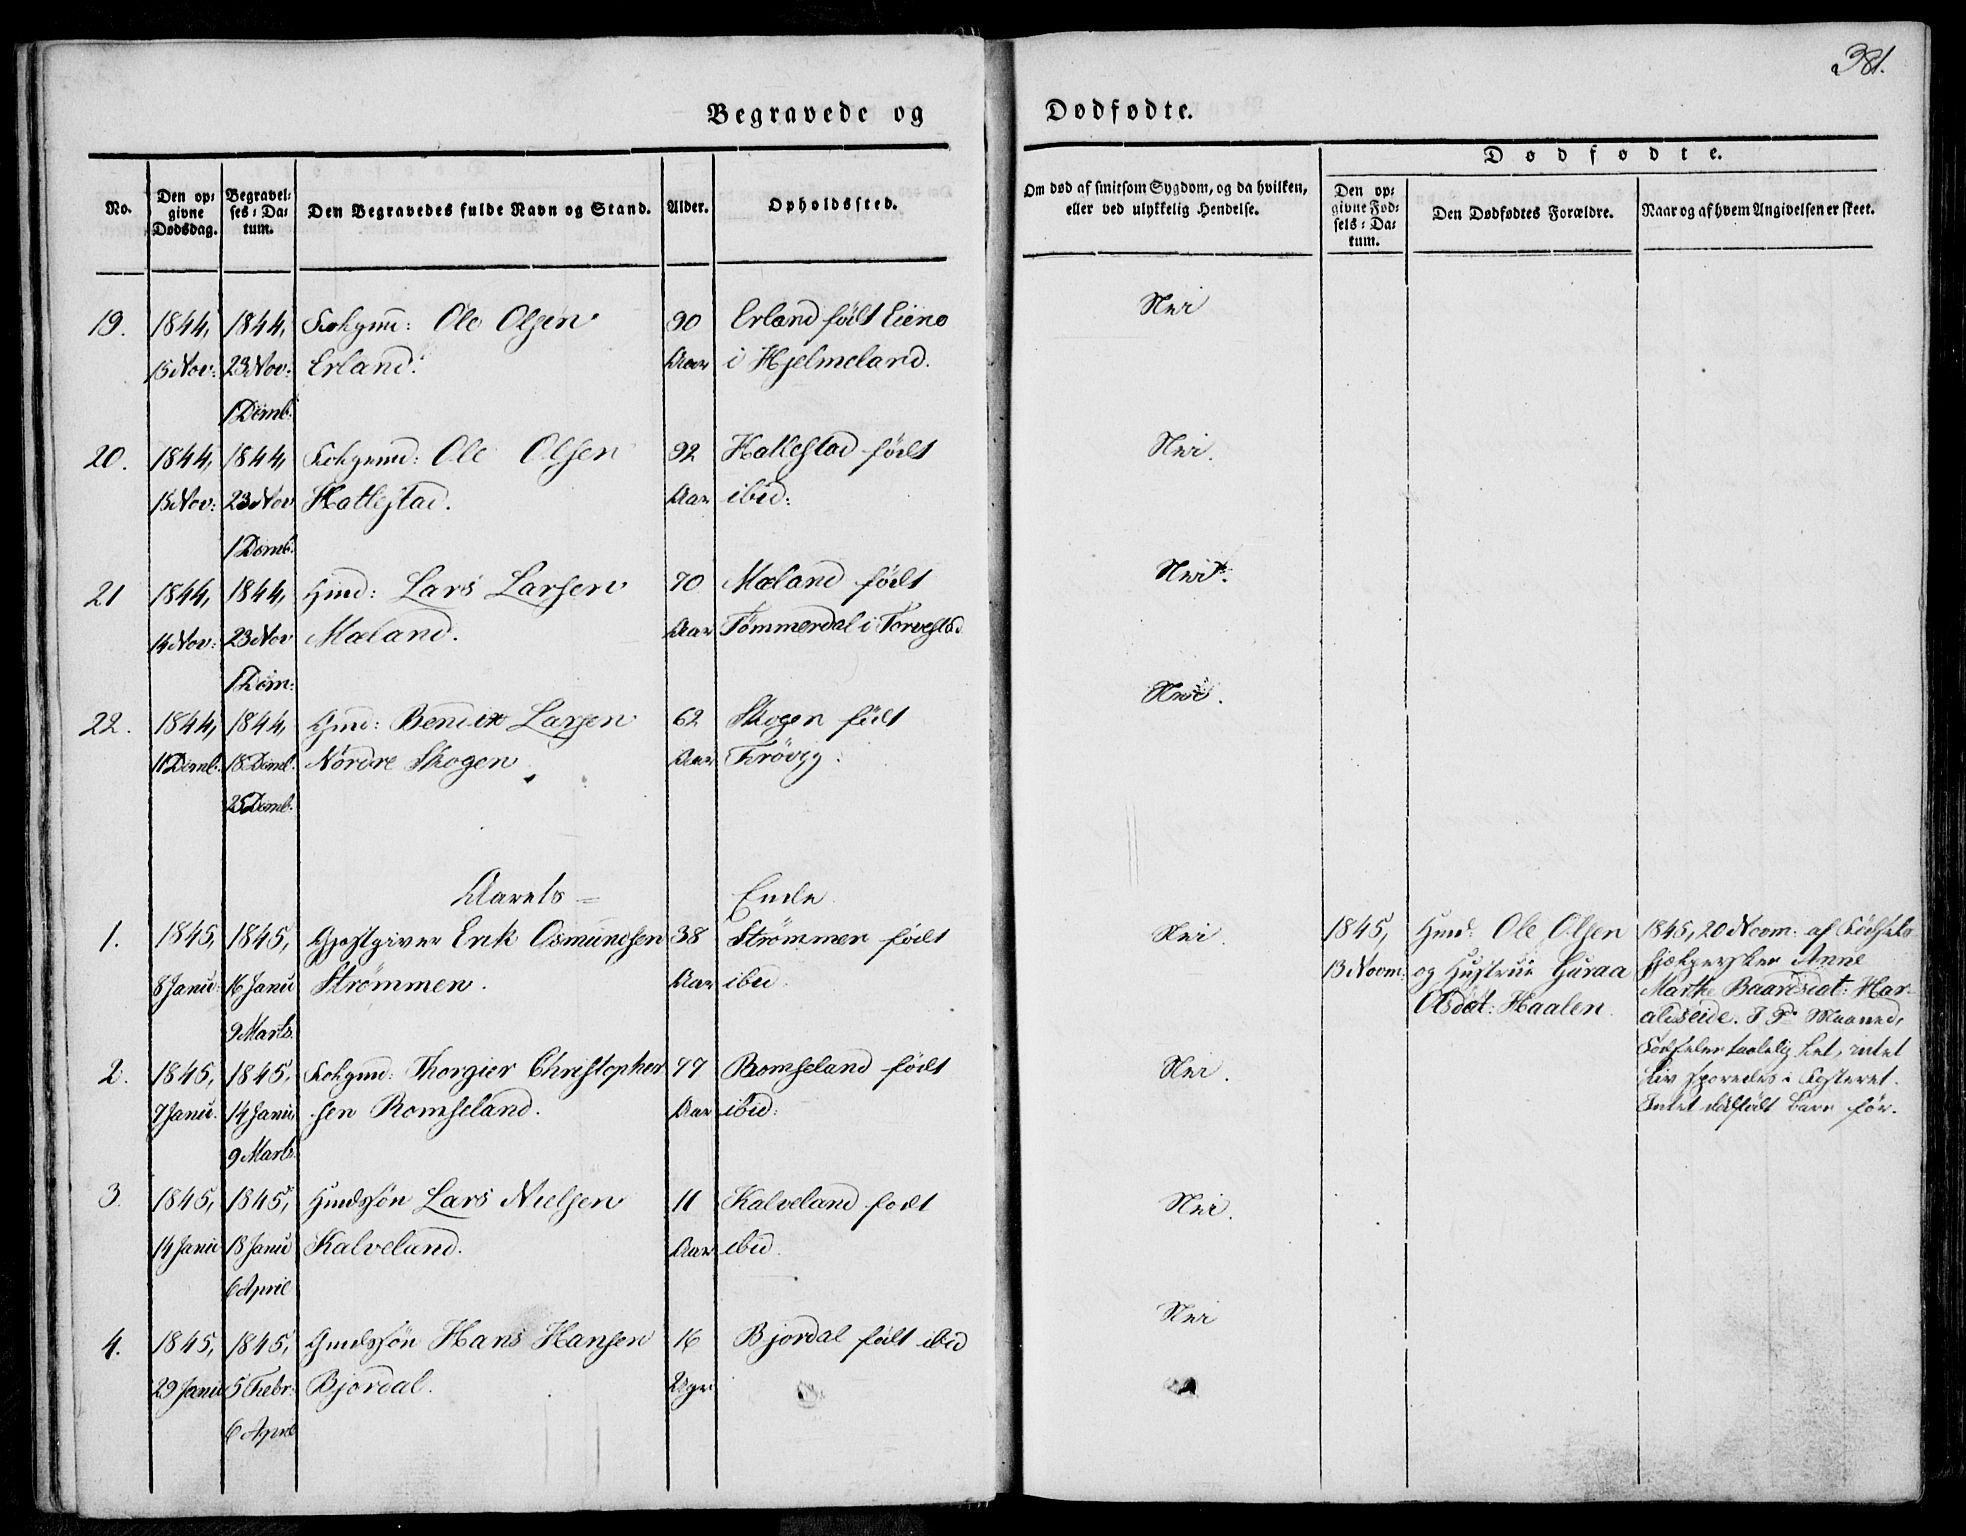 381.
Begravede og Dødfødte.
No.
Den op-
givne
Dødsdag.
Begravel-
ses-Da-
tum.
Den Begravedes fulde Navn og Stand.
Alder.
Opholdssted.
Om død af smitsom Sygdom, og da hvilken,
eller ved ulykkelig Hendelse.
Dødfødte.
Den op-
givne Fød-
sels-Da-
tum.
Den Dødfødtes Forældre.
Naar og af hvem Angivelsen er skeet.
19. 1844, 1844, Ole Olsen 90 Erland født Eiene Nei
15 Nov: 23 Nov: Erland. Aar i Hjelmeland.
1 Decmb.
20. 1844, 1844, Ole Olsen 92 Hattestad født Nei.
15 Nov: 23 Nov Hattestad. Aar ibid:
1 Decmb.
21 1844, 1844, Gmd: Lars Larsen 70 Mæland født Nei.
14 Nov: 23 Nov Mæland. Aar Tømmerdal i Torvestad
1 Decm:
22. 1844, 1844, Gmd: Bendix Larsen 62 Skogen født Nei.
11 Decmb. 18 Decmb. Nordre Skogen Aar Frøvig.
25 Decmb.
Aarets = Ende
1. 1845, 1845, Gjæstgiver Erik Osmundsen 38 Strømmen født Nei.
8 Janu: 16 Janu Strømmen. Aar ibid.
9 Marts.
2. 1845, 1845, Thorgier Christopher 77 Romseland født Nei.
7 Janu. 14 Janu sen Romseland. Aar ibid:
9 Marts.
3. 1845, 1845, Gmdssøn Lars Nielsen 11 Kalveland født Nei.
14 Janu 18 Janu Kalveland. Aar ibid.
6 April
4. 1845, 1845, Gmdssøn Hans Hansen 16 Bjordal født ibid Nei
29 Janu 5 Febr: Bjordal. Uger
6 April
1845,
13 Novm:
Gmd: Ole Olsen
og Hustrue Guraa
Olsdat: Haalen.
1845, 20 Novm: af Fødsels
hjælpersken Anne
Marthe Baardsdat: Har-
aldseide. I Maaned,
Fødselen taalelig let, intet
Liv sporedes i Fosteret.
Intet dødfødt Barn før.